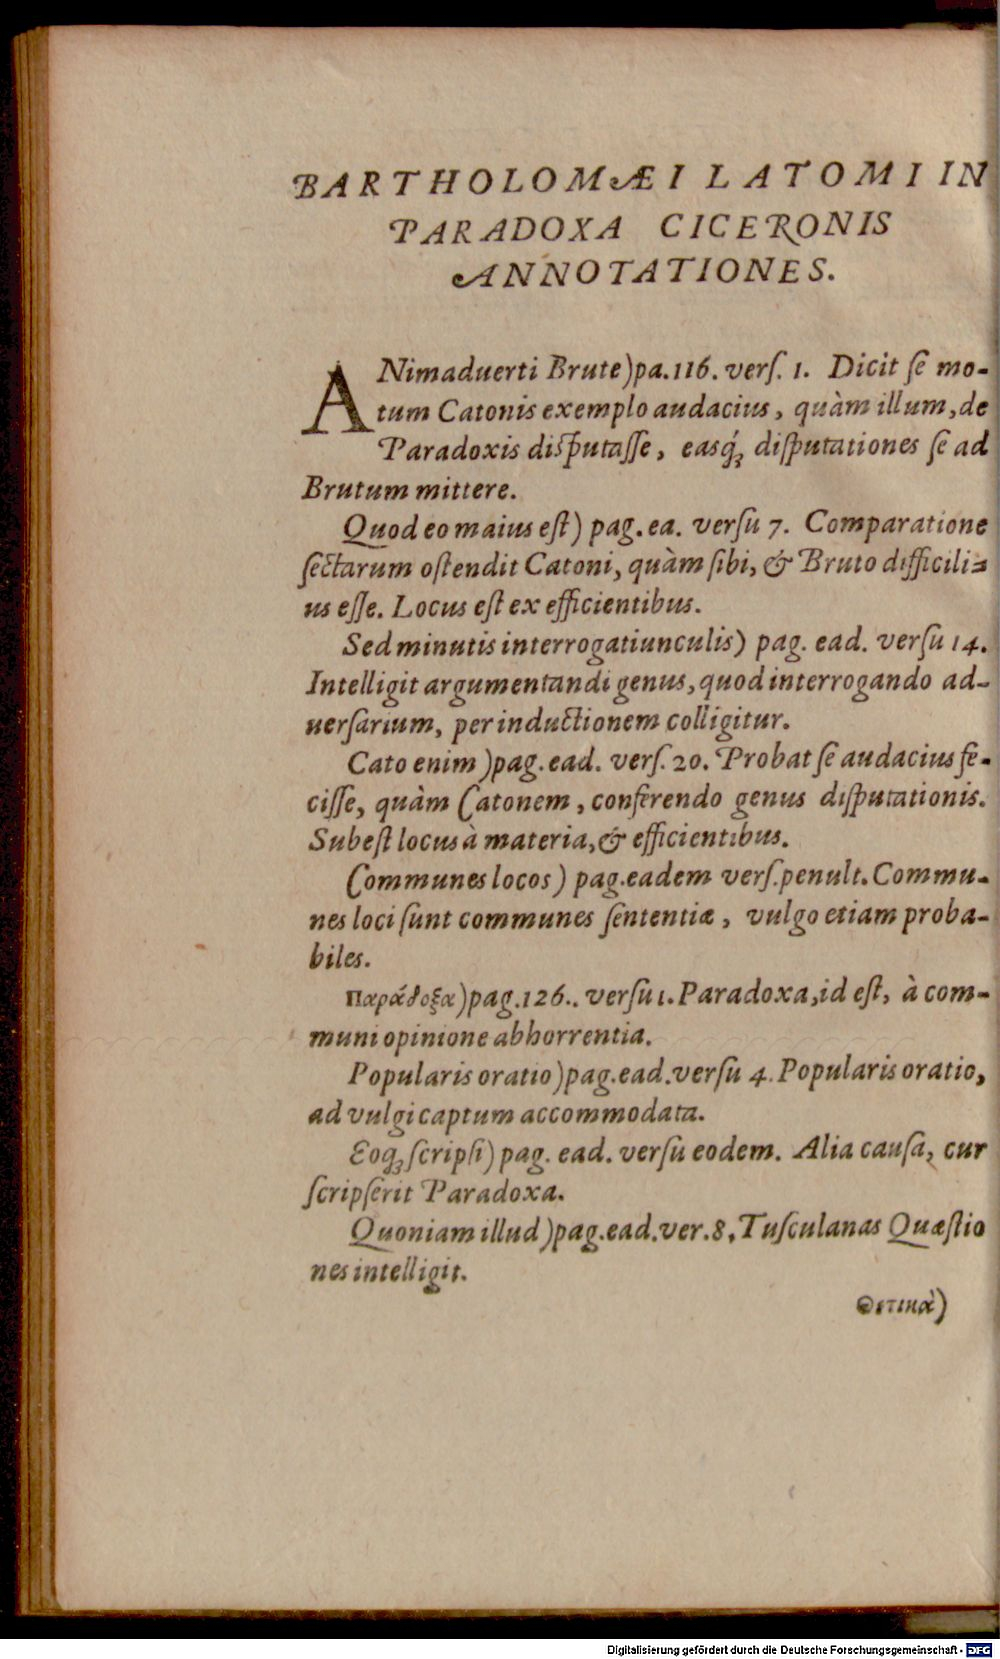 BARTHOLOMÆI LATOMI IN
PARADOXA CICERONIS
ANNOTATIONES.
ANimaduerti Brute)pa.116. verſ. 1. Dicit ſe mo-
tum Catonis exemplo audacius, quàm illum, de
Paradoxis diſputaſſe, easq́ꝫ diſputationes ſe ad
Brutum mittere.
Quod eo maius eſt) pag. ea. verſu 7. Comparatione
ſectarum oſtendit Catoni, quàm ſibi, & Bruto difficili=
us eſſe. Locus eſt ex efficientibus.
Sed minutis interrogatiunculis) pag. ead. verſu 14.
Intelligit argumentandi genus, quod interrogando ad-
uerſarium, per inductionem colligitur.
Cato enim )pag. ead. verſ. 20. Probat ſe audacius fe-
ciſſe, quàm Catonem, conferendo genus diſputationis.
Subeſt locus à materia, & efficientibus.
Communes locos) pag. eadem verſ. penult. Commu-
nes loci ſunt communes ſententiæ, vulgo etiam proba-
biles.
Παράδοξα)pag.126.. verſu 1. Paradoxa, id eſt, à com-
muni opinione abhorrentia.
Popularis oratio)pag.ead.verſu 4. Popularis oratio,
ad vulgi captum accommodata.
Eoqꝫ ſcripſi) pag. ead. verſu eodem. Alia cauſa, cur
ſcripſerit Paradoxa.
Quoniam illud )pag.ead.ver.8. Tuſculanas Quæſtio
nes intelligit.
Θετικὰ)
Digitalisierung gefördert durch die Deutsche Forschungsgemeinschaft - DFG